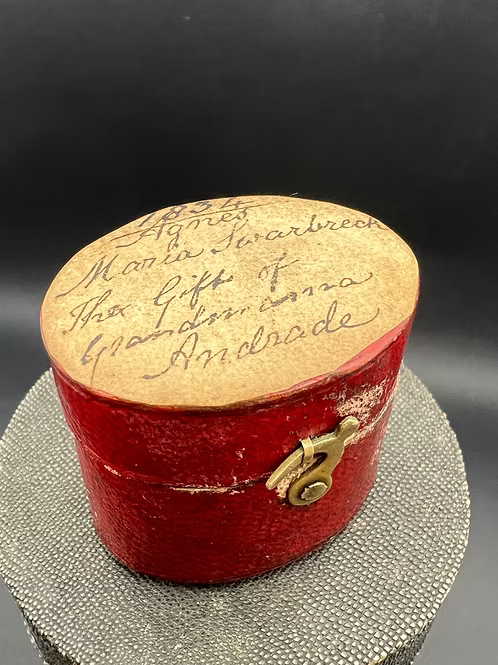 1834
Agnes
Maria Swarbreck
The Gift of
Grandmamma
Andrade